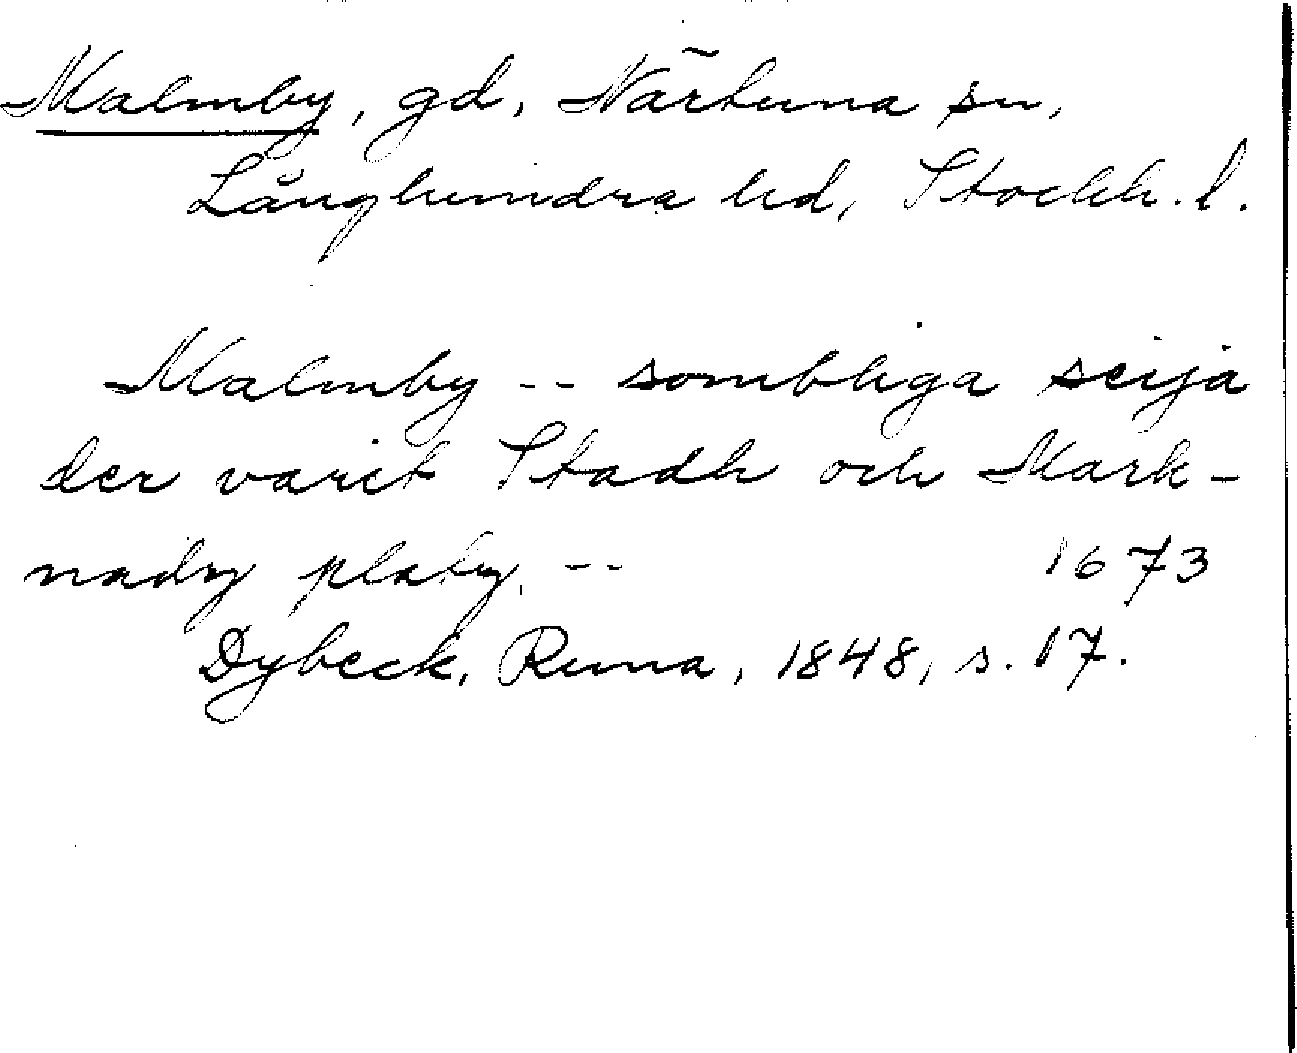 Malmby, gd, Närtuna sn,
Långhundra hd, Stockh. l.
Malmby -- sombliga seija
der varit Stadh och Mark-
nadz platz, -- 1673
Dybeck, Runa, 1848, s. 17.